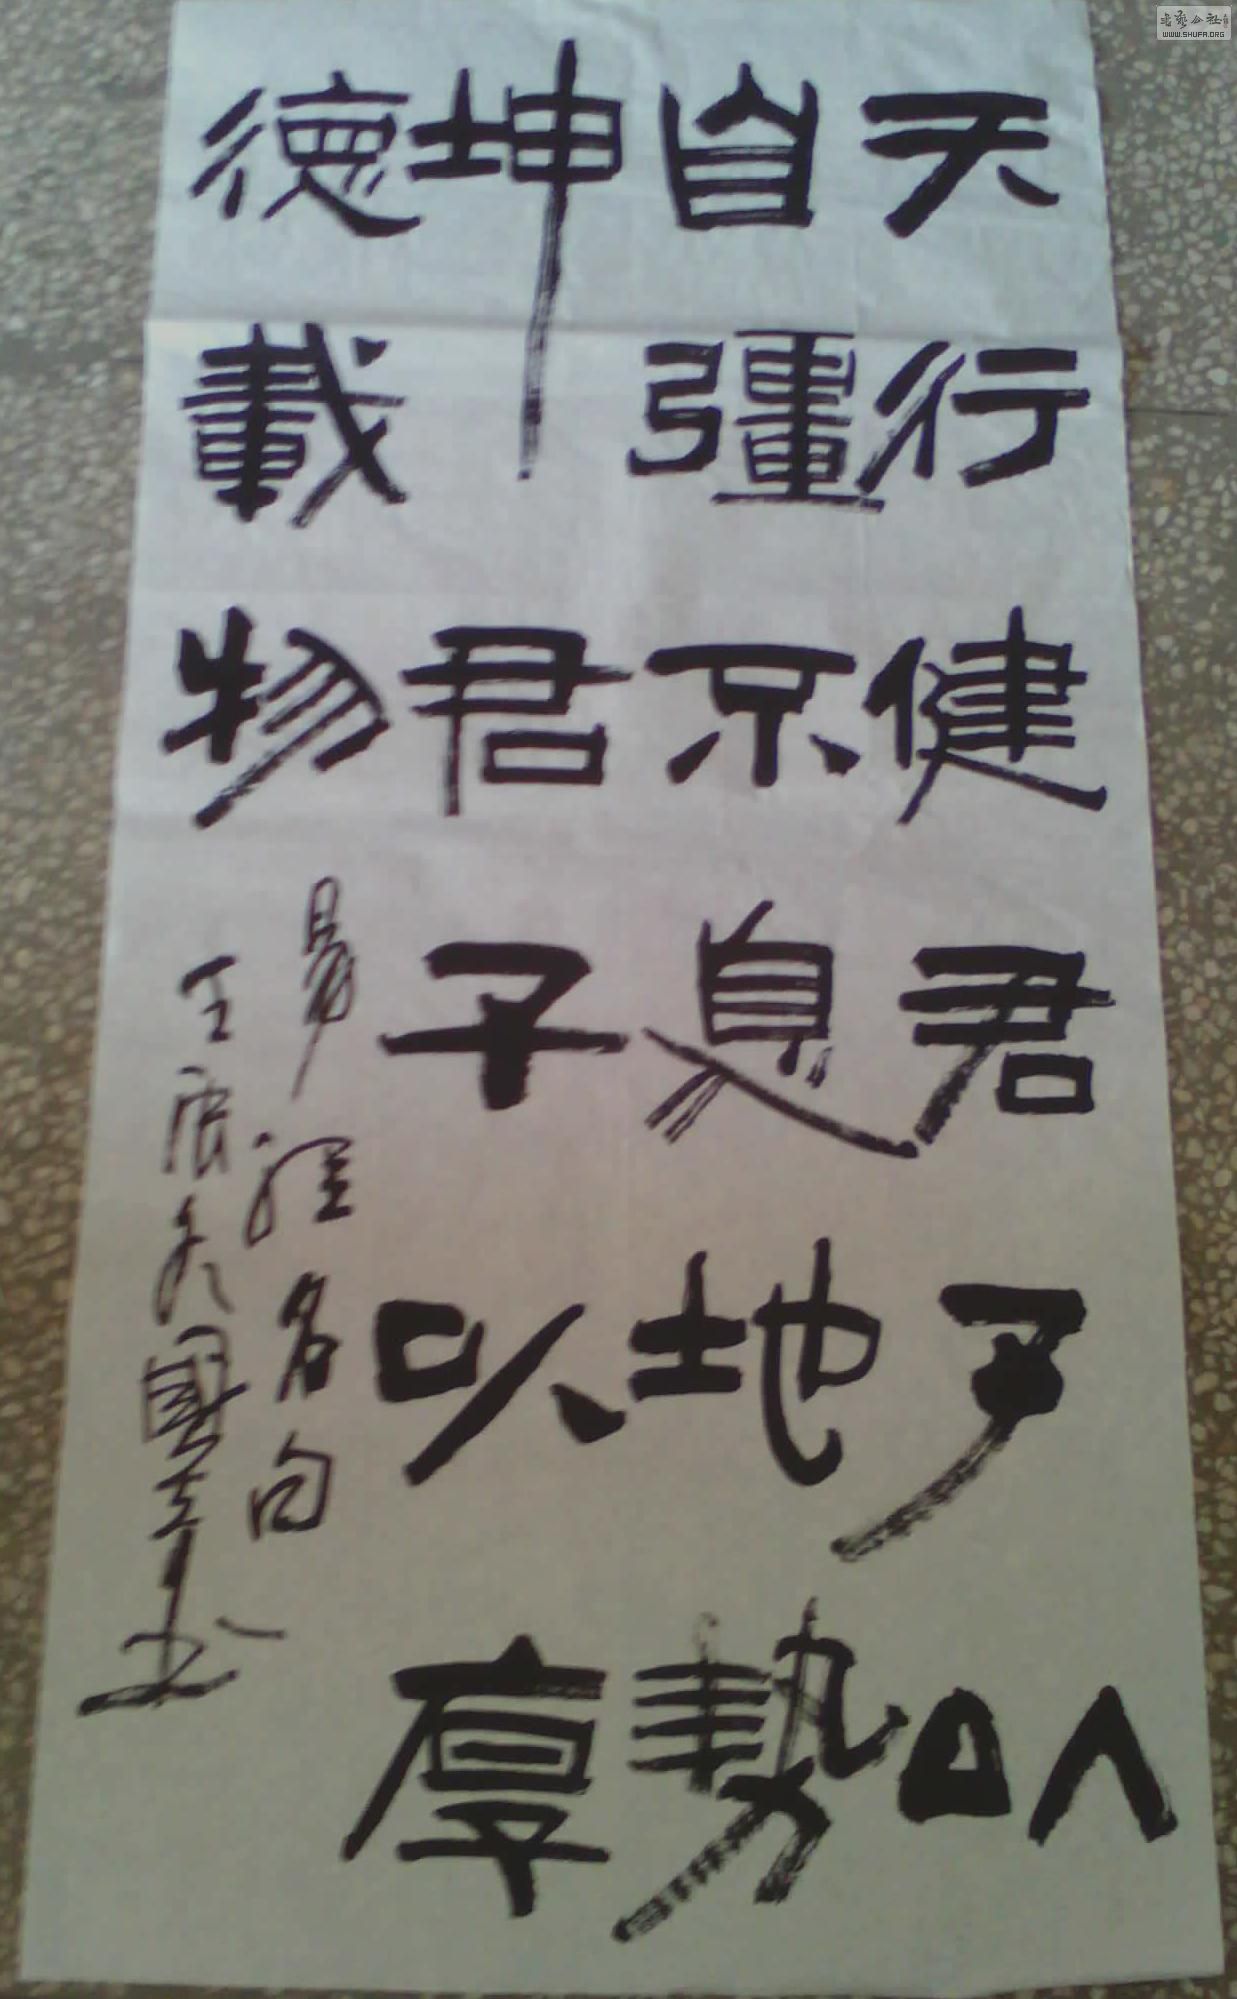 天行健君子以
自彊不息地勢
坤君子以厚
德載物
易經名句
壬辰冬國
WWW.SHUFA.ORG